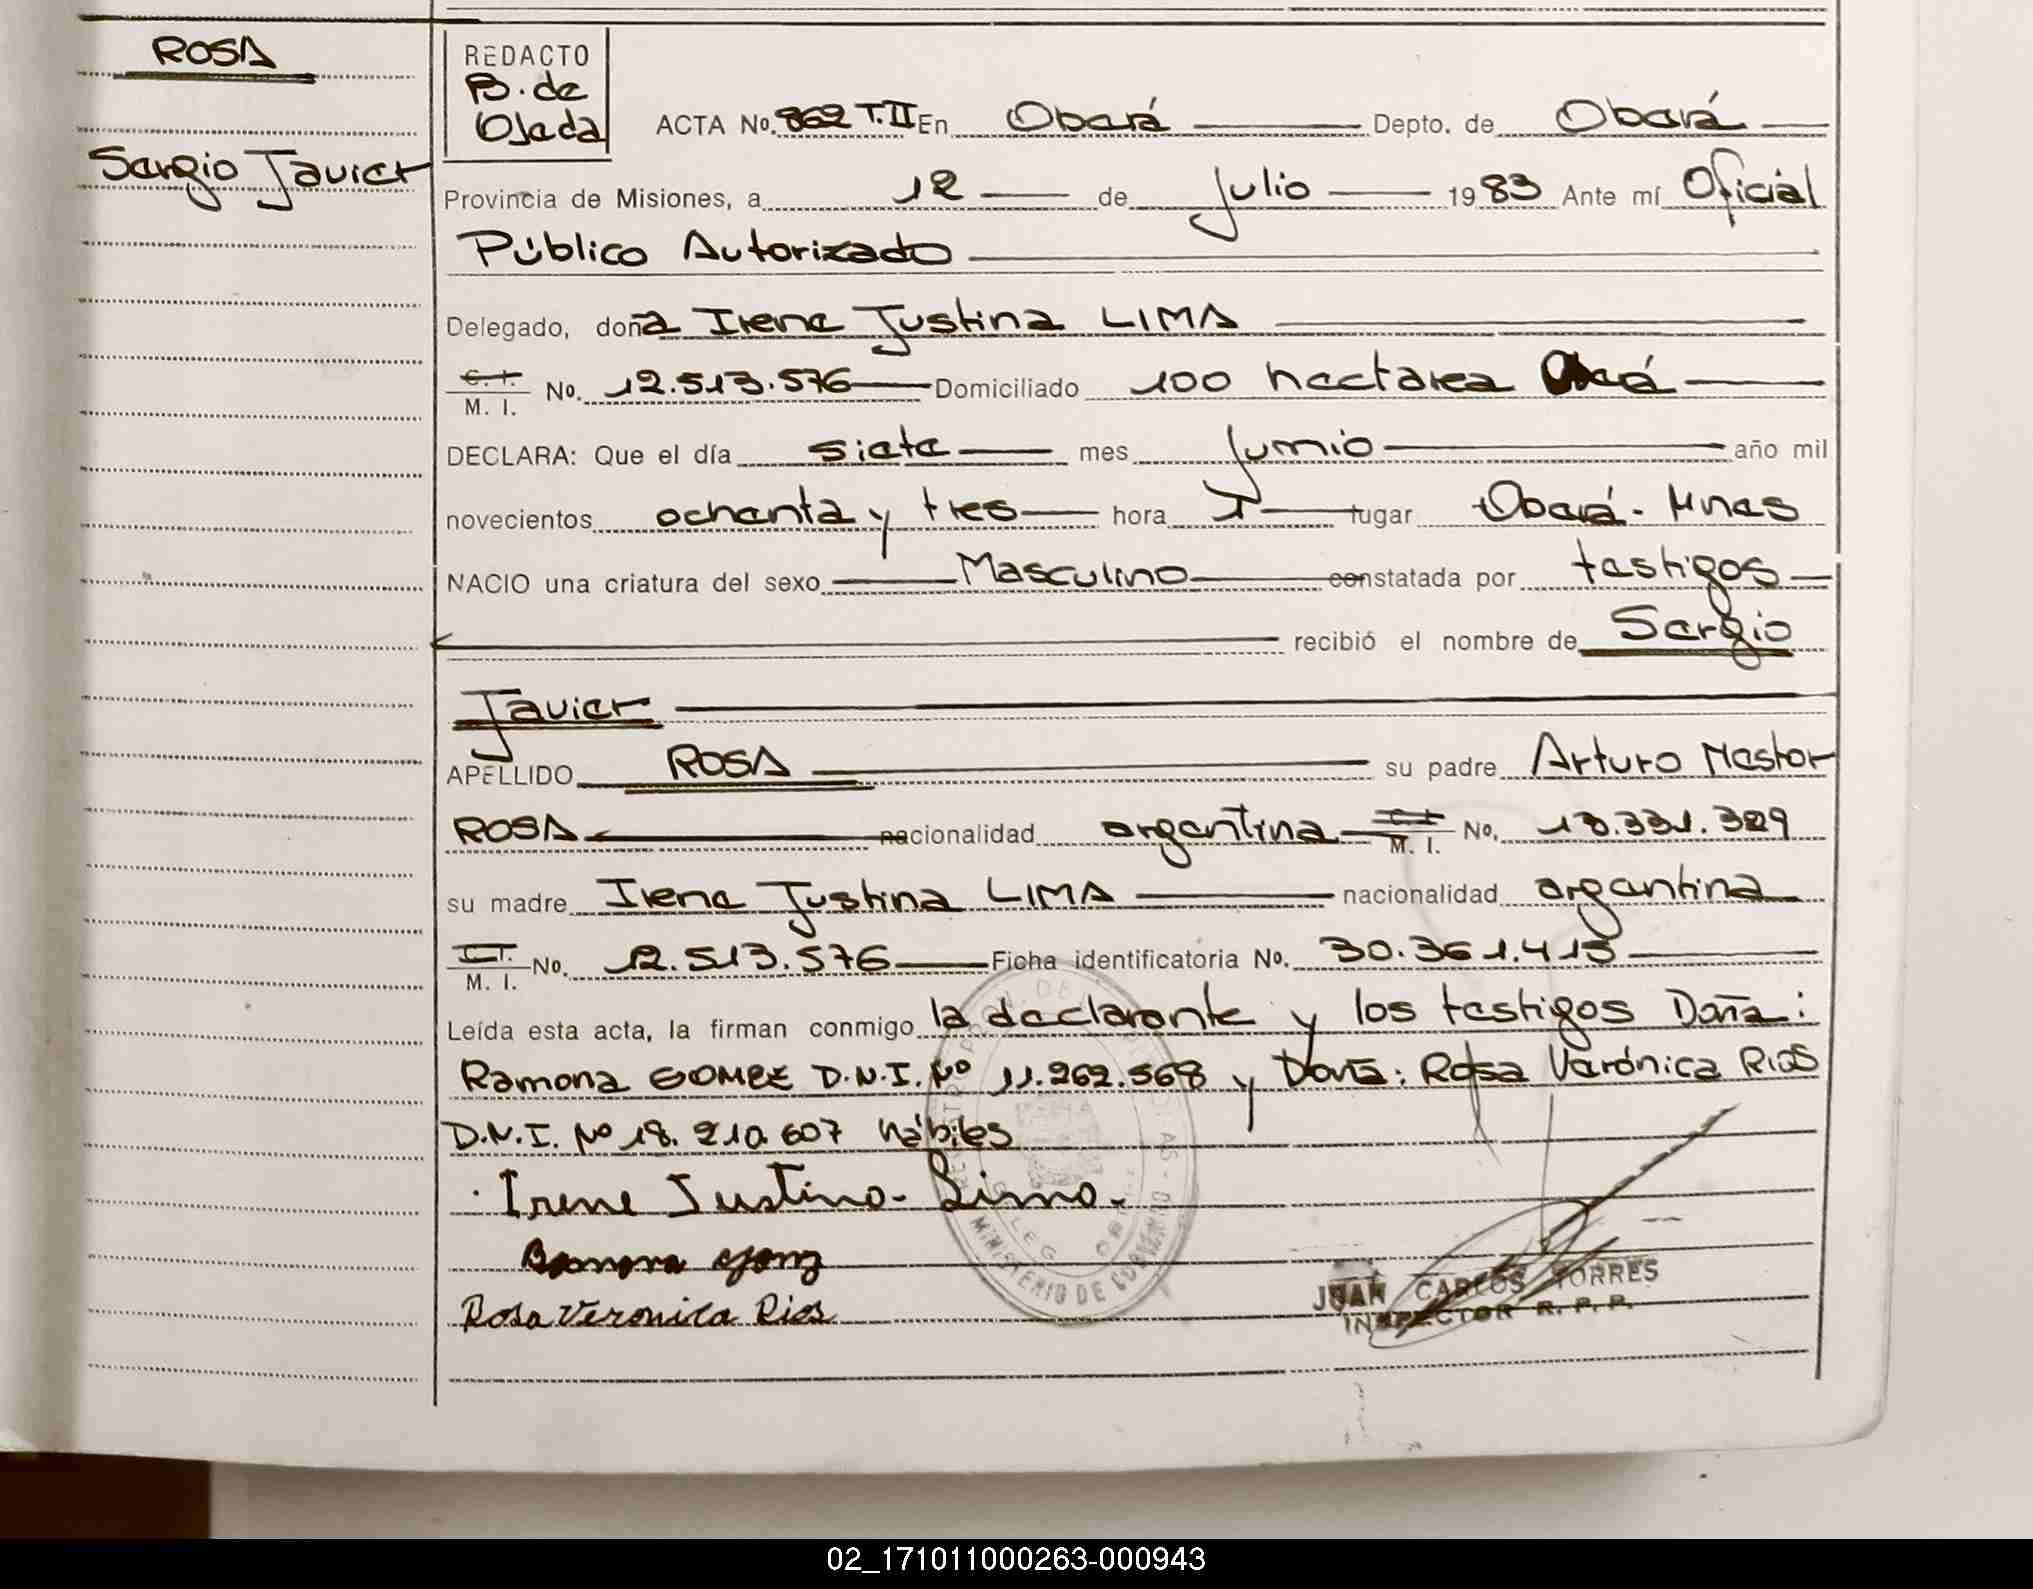 ROSA
Sergio Javier
REDACTO
B. de
Ojeda
ACTA No. 862 T.II En Oberá Depto. de Oberá
Provincia de Misiones, a 12 de Julio 1983 Ante mí Oficial
Público Autorizado
Delegado, doña Irene Justina LIMA
C. I. M. I. No. 12.513.576 Domiciliado 100 hectarea
DECLARA: Que el día siete mes Junio año mil
novecientos ochenta y tres hora lugar Oberá - Mnes
NACIO una criatura del sexo Masculino constatada por testigos
recibió el nombre de Sergio
Javier
APELLIDO ROSA su padre Arturo Nestor
ROSA nacionalidad argentina C. I. M. I. No.
su madre Irene Justina LIMA nacionalidad argentina
M. I. No. 12.513.576 Ficha identificatoria No. 30.361.415
Leída esta acta, la firman conmigo la declarante y los testigos Doña:
Ramona GOMEZ D.N.I. Nº 11.262.568 y Doña: Rosa Verónica RIOS
D.N.I. Nº 18.210.607 hábiles
Irene Justina Lima.
Ramona
Rosa Veronica Rios
MINISTERIO DE GOBIERNO
JUAN CARLOS TORRES
INSPECTOR R. P. P.
02_171011000263-000943